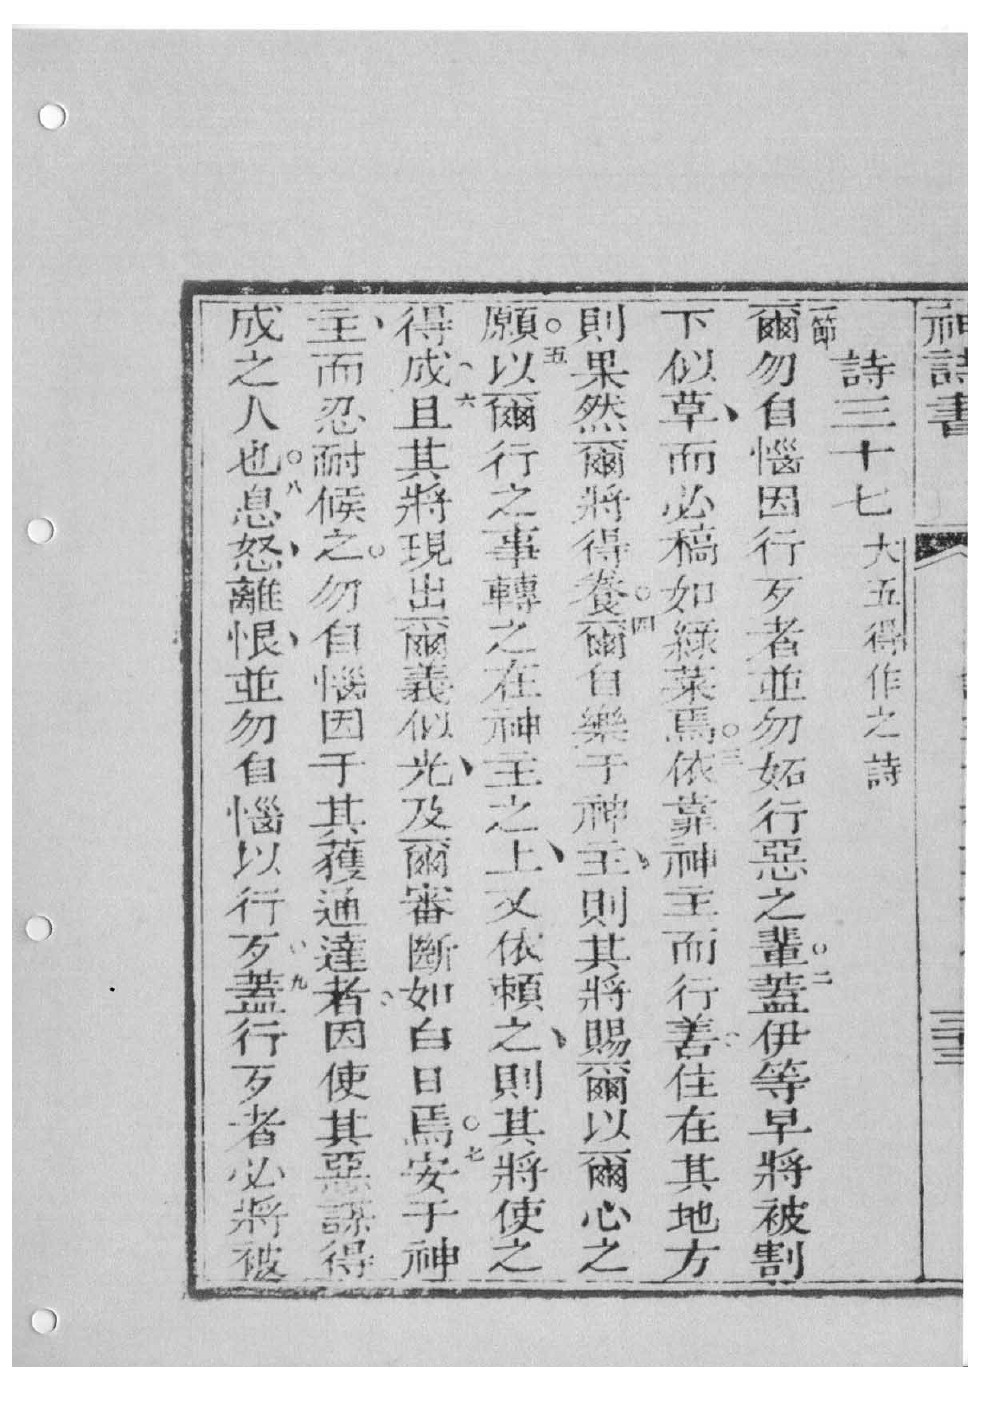 神詩書
三十三
詩三十七 大五得作之詩
一節爾勿自惱因行歹者並勿妬行惡之輩○二蓋伊等早將被割
下似草、而必槁如綠菜焉○三依靠神主而行善、住在其地方
則果然爾將得養○四爾自樂于神主、則其將賜爾以爾心之
願○五以爾行之事轉之在神主之上、又依賴之、則其將使之
得成、六且其將現出爾義似光、及爾審斷如白日焉○七安于神
主、而忍耐候之○勿自惱因于其獲通達者、因使其惡謀得
成之人也○八息怒、離恨、並勿自惱以行歹、九蓋行歹者必將被